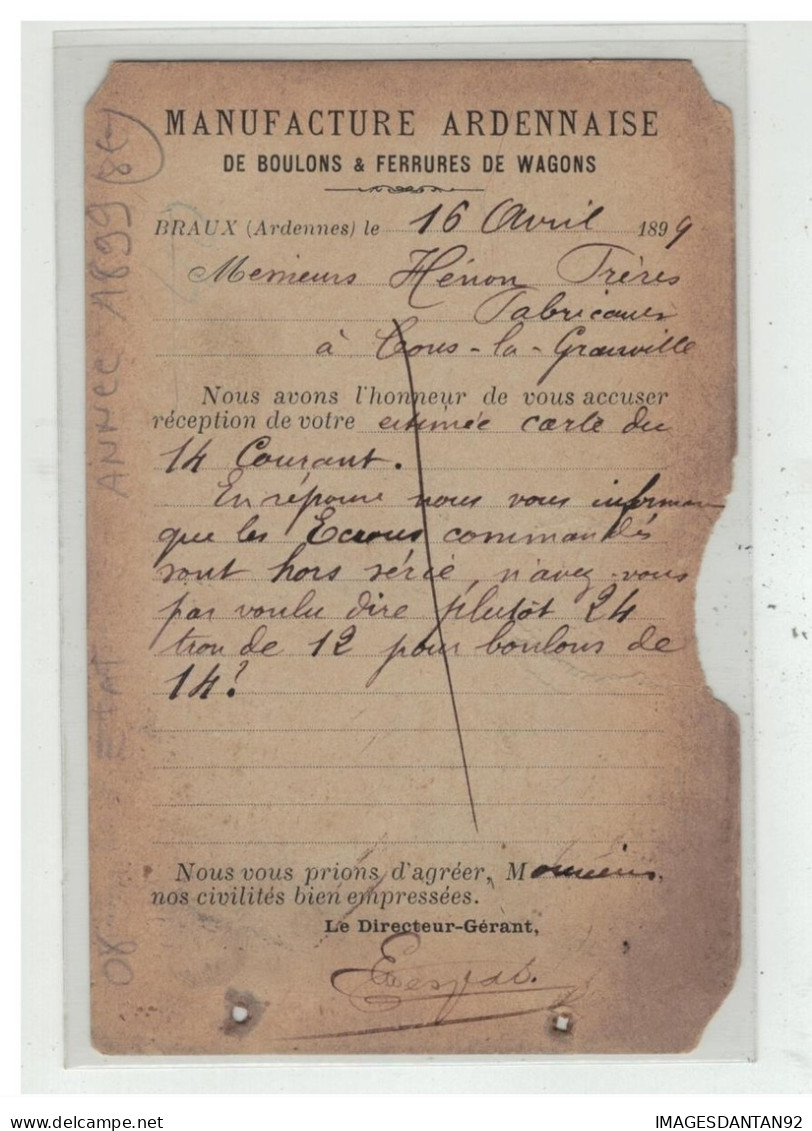 MANUFACTURE ARDENNAISE
DE BOULONS & FERRURES DE WAGONS
BRAUX (Ardennes) le 16 Avril 1899
Messieurs Hénon Frères
Fabricants
à Cons-la-Granville
Nous avons l'honneur de vous accuser
réception de votre estimée carte du
14 Courant.
En réponse nous vous informons
que les Ecrous commandés
sont hors série, n'avez-vous
pas voulu dire plutôt 24
trou de 12 pour boulons de
14?
Nous vous prions d'agréer, Messieurs,
nos civilités bien empressées.
Le Directeur-Gérant,
08
ETAT
ANNEE 1899
IMAGESDANTAN92